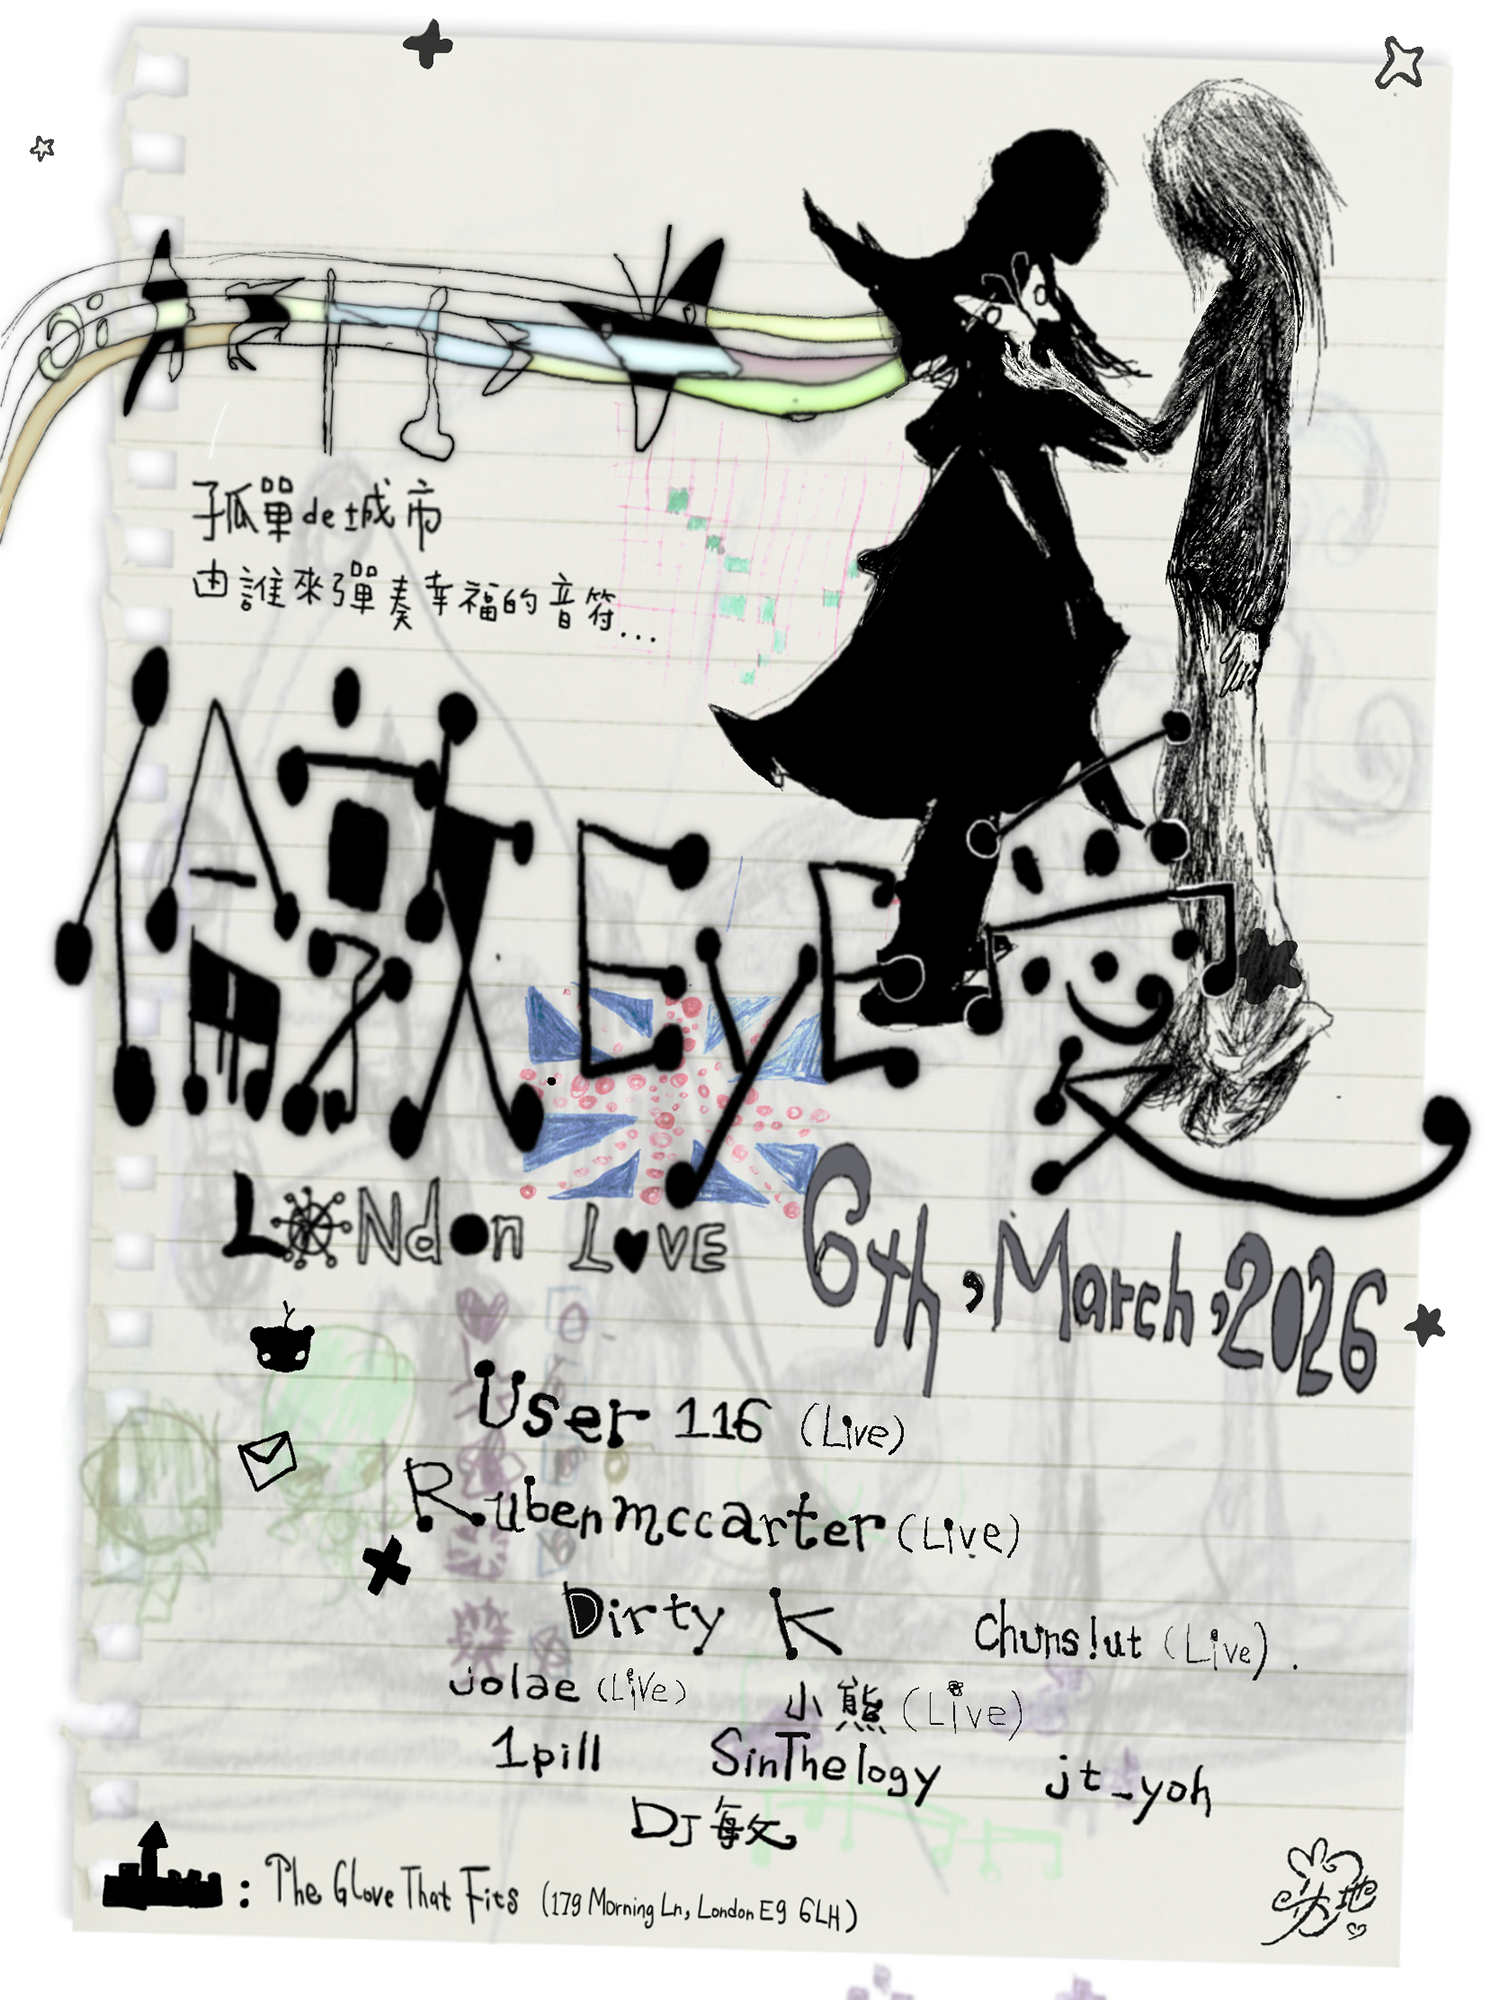 孤單de城市
由誰來彈奏幸福的音符...
做EyE愛
LoNdon LoVE
6th,March,2026
User 116 (Live)
Rubenmccarter (Live)
Dirty K
Chuns!ut (Live).
jolae (LiVe)
小熊 (Live)
1pill
SinThelogy
jt_yoh
DJ 敏
: The Glove That Fits (179 Morning Ln, London E9 6LH)